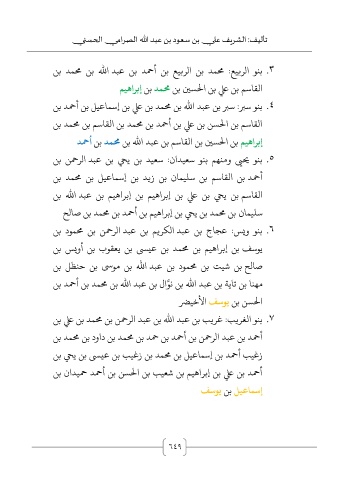 تأليف: الشريف علي بن سعود بن عبد الله الصرامي الحسني
٣. بنو الربيع: محمد بن الربيع بن أحمد بن عبد الله بن محمد بن
القاسم بن علي بن الحسين بن محمد بن إبراهيم
٤. بنو سبر: سبر بن عبد الله بن محمد بن علي بن إسماعيل بن أحمد بن
القاسم بن الحسن بن علي بن أحمد بن محمد بن القاسم بن محمد بن
إبراهيم بن الحسين بن القاسم بن عبد الله بن محمد بن أحمد
٥. بنو يحيى ومنهم بنو سعيدان: سعيد بن يحي بن عبد الرحمن بن
أحمد بن القاسم بن سليمان بن زيد بن إسماعيل بن محمد بن
القاسم بن يحي بن علي بن إبراهيم بن إبراهيم بن عبد الله بن
سليمان بن محمد بن يحي بن إبراهيم بن أحمد بن محمد بن صالح
٦. بنو ويس: عجاج بن عبد الكريم بن عبد الرحمن بن محمود بن
يوسف بن إبراهيم بن محمد بن عيسى بن يعقوب بن أويس بن
صالح بن شيث بن محمود بن عبد الله بن موسى بن حنظل بن
مهنا بن تاية بن عبد الله بن نوّال بن عبد الله بن محمد بن أحمد بن
الحسن بن يوسف الأخيضر
٧. بنو الغريب: غريب بن عبد الله بن عبد الرحمن بن محمد بن علي بن
أحمد بن عبد الرحمن بن أحمد بن حمد بن محمد بن داود بن محمد بن
زغيب أحمد بن إسماعيل بن محمد بن زغيب بن عيسى بن يحي بن
أحمد بن علي بن إبراهيم بن شعيب بن الحسن بن أحمد حميدان بن
إسماعيل بن يوسف
٦٤٩